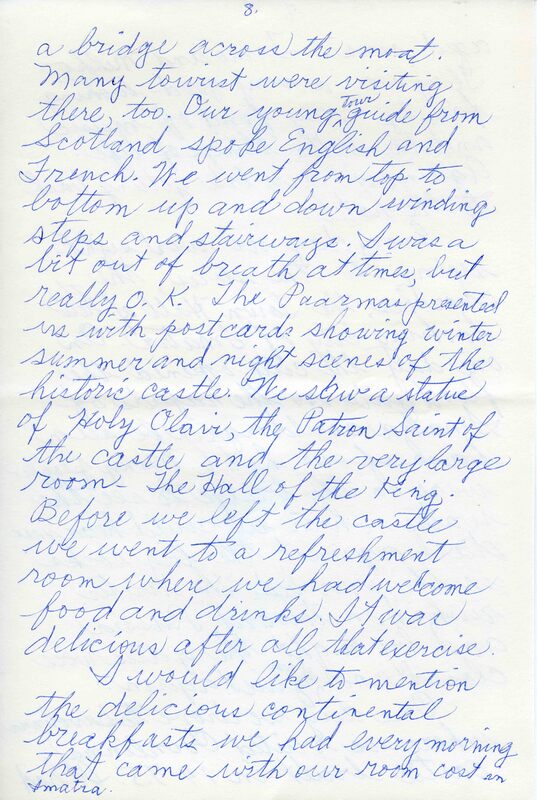 8.
a bridge across the moat.
Many tourist were visiting
there, too. Our young tour guide from
Scotland spoke English and
French. We went from top to
bottom up and down winding
steps and stairways. I was a
bit out of breath at times, but
really O.K. The Paarmas presented
us with postcards showing winter
summer and night scenes of the
historic castle. We saw a statue
of Holy Olavi, the Patron Saint of
the castle and the very large
room - The Hall of the King.
Before we left the castle
we went to a refreshment
room where we had welcome
food and drinks. It was
delicious after all that exercise.
I would like to mention
the delicious continental
breakfasts we had every morning
that came with our room cost in
Imatra.